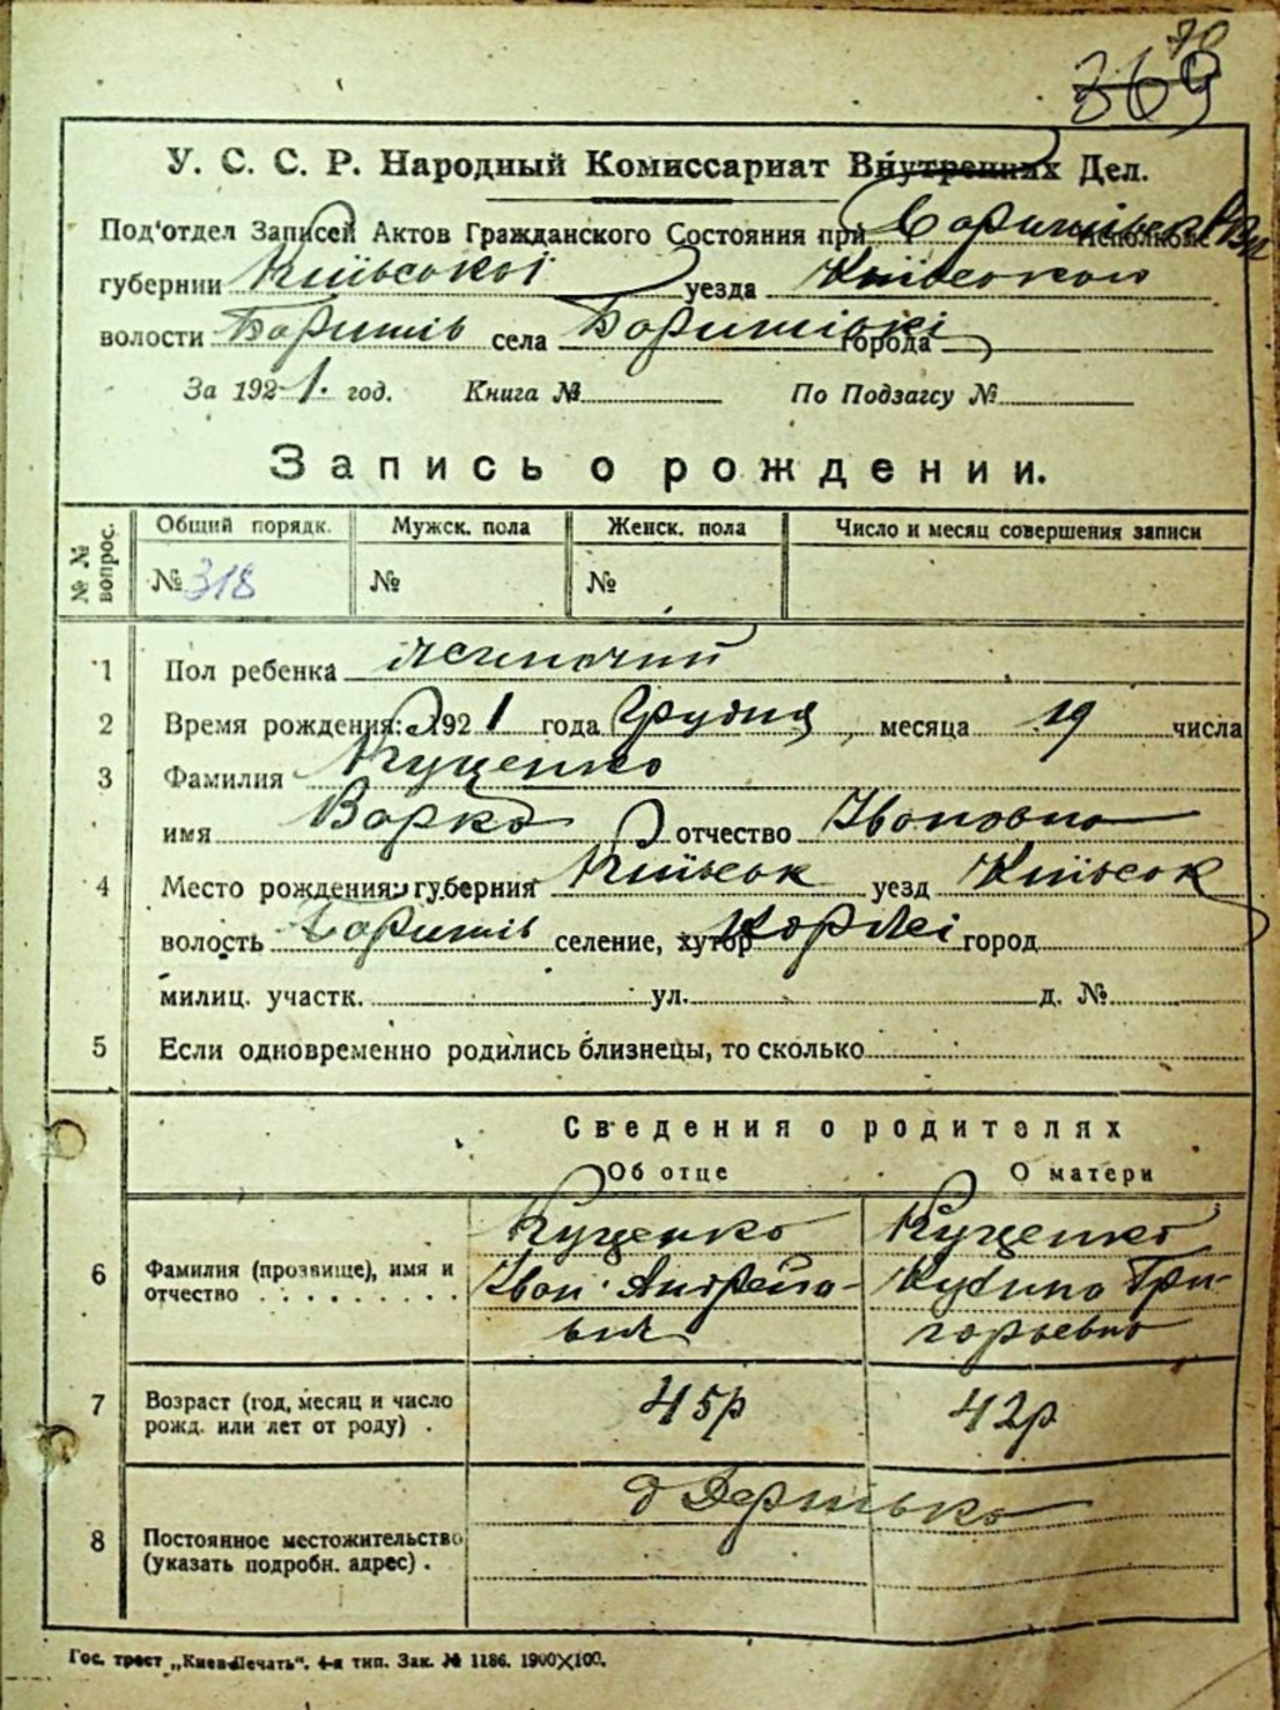 70
369
У. С. С. Р. Народный Комиссариат Внутренних Дел.
Под'отдел Записей Актов Гражданского Состояния при Исполкоме
губернии Київської уезда Київського
волости села города
За 1921. год. Книга № По Подзагсу №
Запись о рождении.
№ № вопрос. Общий порядк. Мужск. пола Женск. пола Число и месяц совершения записи
№ 318 № №
1 Пол ребенка жиночий
2 Время рождения: 1921 года Грудня месяца 19 числа
3 Фамилия Куценко
имя Варка отчество Ивановна
4 Место рождения: губерния Київськ уезд Київськ
волость селение, хутор город
милиц. участк. ул. д. №
5 Если одновременно родились близнецы, то сколько
Сведения о родителях
Об отце О матери
Куценко Куценко
6 Фамилия (прозвище), имя и отчество . . . . . . . . . Иван Андрейо- Гри-
вич горьевна
7 Возраст (год, месяц и число рожд. или лет от роду) . 45р 42р
8 Постоянное местожительство (указать подробн. адрес) .
Гос. трест „Киев-Печать". 4-я тип. Зак. № 1186. 1900×100.